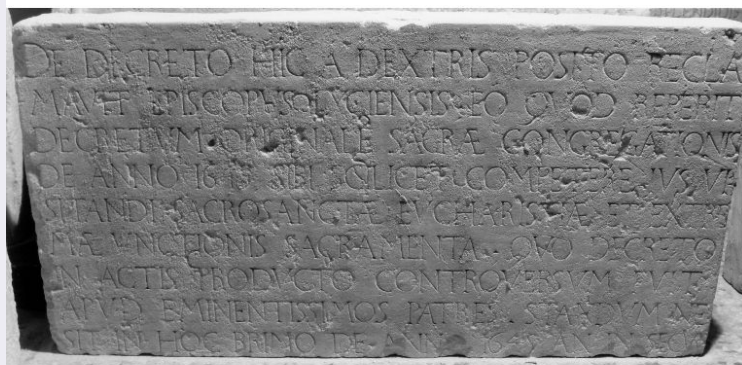 DE DECRETO HIC A DEXTRIS POSITO RECLA
MAVIT EPISCOPVS EO QVOD REPERIT
DECRETVM ORIGINALE SACRÆ CONGREGATIONIS
DE ANNO SIBI SCILICET COMPETERE IVS VI
SITANDI SACROSANCTÆ EVCHARISTIÆ ET EXTRE
MÆ VNCTIONIS SACRAMENTA QVO DECRETO
IN ACTIS PRODVCTO CONTROVERSVM FVIT
APVD EMINENTISSIMOS PATRES STANDVM NE
SIT IN HOC PRIMO DE ANNO AN IN SECV